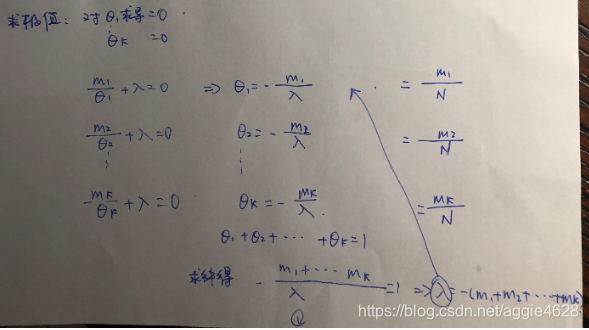 求极值: 对θ₁求导=0
⋮
θK =0
m₁/θ₁ + λ=0 => θ₁= - m₁/λ = m₁/N
m₂/θ₂ + λ=0 θ₂= - m₂/λ = m₂/N
⋮ ⋮
mK/θK + λ=0 θK= - mK/λ = mK/N
θ₁+θ₂+ ⋯ +θK=1
求解得 - m₁+⋯ mK/λ =1 => λ=-(m₁+m₂+⋯+mK)
https://blog.csdn.net/aggie4628